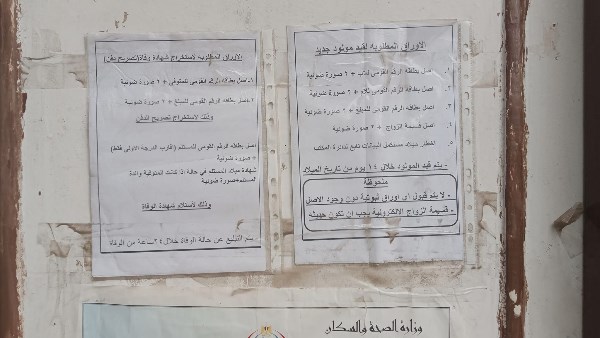 الاوراق المطلوبه لقيد مولود جديد
1. اصل بطاقه الرقم القومى للاب + 2 صورة ضوئية
2. اصل بطاقه الرقم القومى للام + 2 صورة ضوئية
3. اصل بطاقه الرقم القومى للمبلغ + 2 صورة ضوئية
4. اصل قسيمة الزواج + 2 صورة ضوئية
5. اخطار ميلاد مستمل البيانات تابع لدائرة المكتب
- يتم قيد المولود خلال 14 يوم من تاريخ الميلاد
ملحوظة
- لا يتم قبول اى اوراق ثبوتية دون وجود الاصل
- قسيمة الزواج الالكترونية يجب ان تكون حديثه
الاوراق المطلوبه لاستخراج شهادة وفاة(تصريح دفن)
1-اصل بطاقه الرقم القومى للمتوفى + 2 صورة ضوئية
2-اصل بطاقه الرقم القومى للمبلغ + 2 صورة ضوئية
وذلك لاستخراج تصريح الدفن
اصل بطاقه الرقم القومى المستلم (اقارب الدرجه الاولى فقط)
+ صورة ضوئية
شهادة ميلاد المستلم فى حالة اذا كانت المتوفية والدة
المستلم+صورة ضوئية
وذلك لاستلام شهادة الوفاة
يتم التبليغ عن حالة الوفاة خلال 24 ساعة من الوفاة
وزارة الصحة والسكان